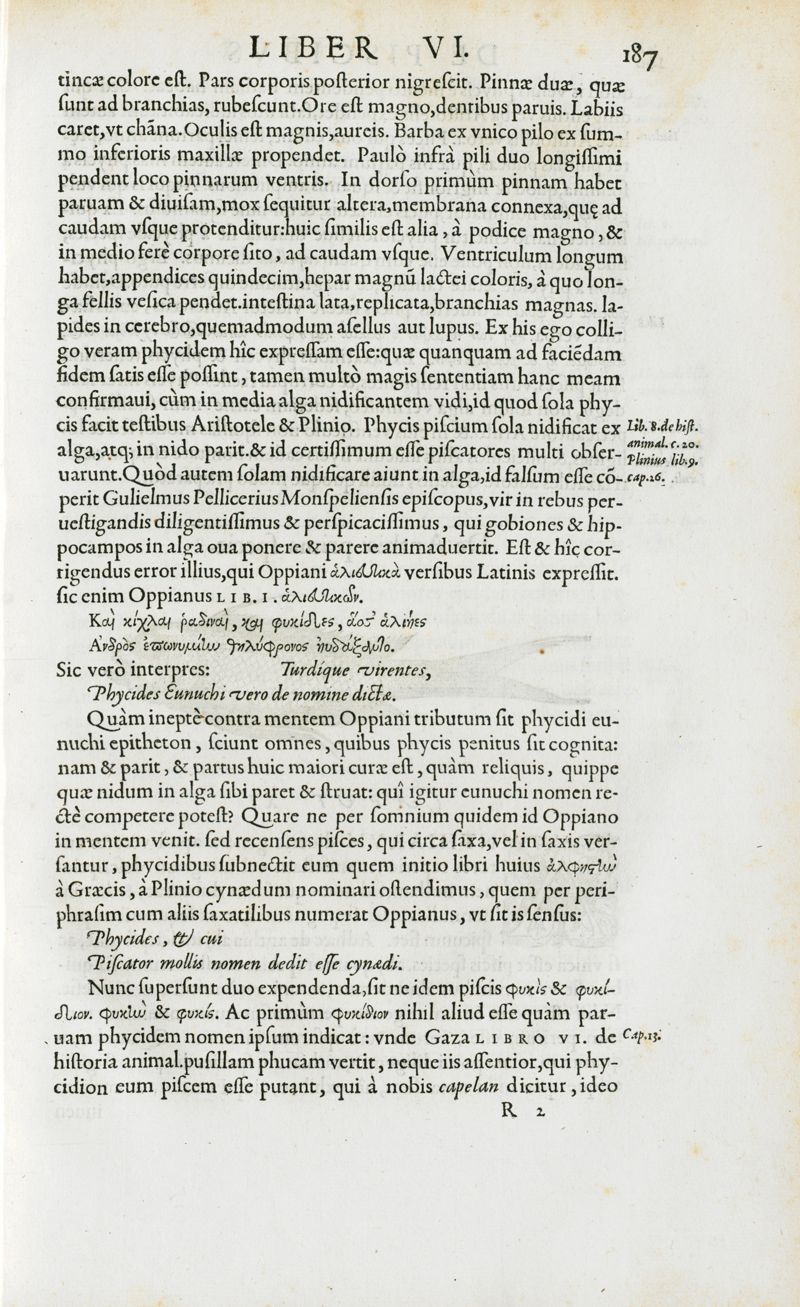 LIBER VI. 187
tincæ colore est. Pars corporis posterior nigrescit. Pinnæ duæ, quæ
sunt ad branchias, rubescunt. Ore est magno, dentibus paruis. Labiis
caret, vt chãna. Oculis est magnis, aureis. Barba ex vnico pilo ex sum-
mo inferioris maxillæ propendet. Paulò infrà pili duo longissimi
pendent loco pinnarum ventris. In dorso primùm pinnam habet
paruam & diuisam, mox sequitur altera, membrana connexa, quę ad
caudam vsque protenditur: huic similis est alia, à podice magno, &
in medio ferè corpore sito, ad caudam vsque. Ventriculum longum
habet, appendices quindecim, hepar magnū lactei coloris, à quo lon-
ga fellis vesica pendet. intestina lata, replicata, branchias magnas. la-
pides in cerebro, quemadmodum asellus aut lupus. Ex his ego colli-
go veram phycidem hîc expressam esse: quæ quanquam ad faciēdam
fidem satis esse possint, tamen multò magis sententiam hanc meam
confirmaui, cùm in media alga nidificantem vidi, id quod sola phy-
cis facit testibus Aristotele & Plinio. Phycis piscium sola nidificat ex Lib. 8. de hist.
alga, atq; in nido parit. & id certissimum esse piscatores multi obser- animal. c. 20.
Plinius lib. 9.
uarunt. Quòd autem solam nidificare aiunt in alga, id falsum esse cō- cap. 26.
perit Gulielmus Pellicerius Monspeliensis episcopus, vir in rebus per-
uestigandis diligentissimus & perspicacissimus, qui gobiones & hip-
pocampos in alga oua ponere & parere animaduertit. Est & hîc cor-
rigendus error illius, qui Oppiani ἁλιευτικὰ versibus Latinis expressit.
sic enim Oppianus LIB. I. ἁλιευτικῶν.
Καὶ κίχλαι ῥαδιναὶ, καὶ φυκίδες, ἅς θ᾽ ἁλιῆες
Ἀνδρὸς ἐπωνυμίην θηλύφρονος ηὐδάξαντο.
Sic verò interpres: Turdique virentes,
Phycides Eunuchi vero de nomine dictæ.
Quàm ineptè contra mentem Oppiani tributum sit phycidi eu-
nuchi epitheton, sciunt omnes, quibus phycis penitus sit cognita:
nam & parit, & partus huic maiori curæ est, quàm reliquis, quippe
quæ nidum in alga sibi paret & struat: quî igitur eunuchi nomen re-
ctè competere potest? Quare ne per somnium quidem id Oppiano
in mentem venit. sed recensens pisces, qui circa saxa, vel in saxis ver-
santur, phycidibus subnectit eum quem initio libri huius ἀλφηστὴν
à Græcis, à Plinio cynædum nominari ostendimus, quem per peri-
phrasim cum aliis saxatilibus numerat Oppianus, vt sit is sensus:
Phycides, & cui
Piscator mollis nomen dedit esse cynædi.
Nunc supersunt duo expendenda, sit ne idem piscis φυκὶς & φυκί-
διον. φυκὴν & φυκίς. Ac primùm φυκίδιον nihil aliud esse quàm par-
uam phycidem nomen ipsum indicat: vnde Gaza LIBRO VI. de Cap. 13.
historia animal. pusillam phucam vertit, neque iis assentior, qui phy-
cidion eum piscem esse putant, qui à nobis capelan dicitur, ideo
R 2